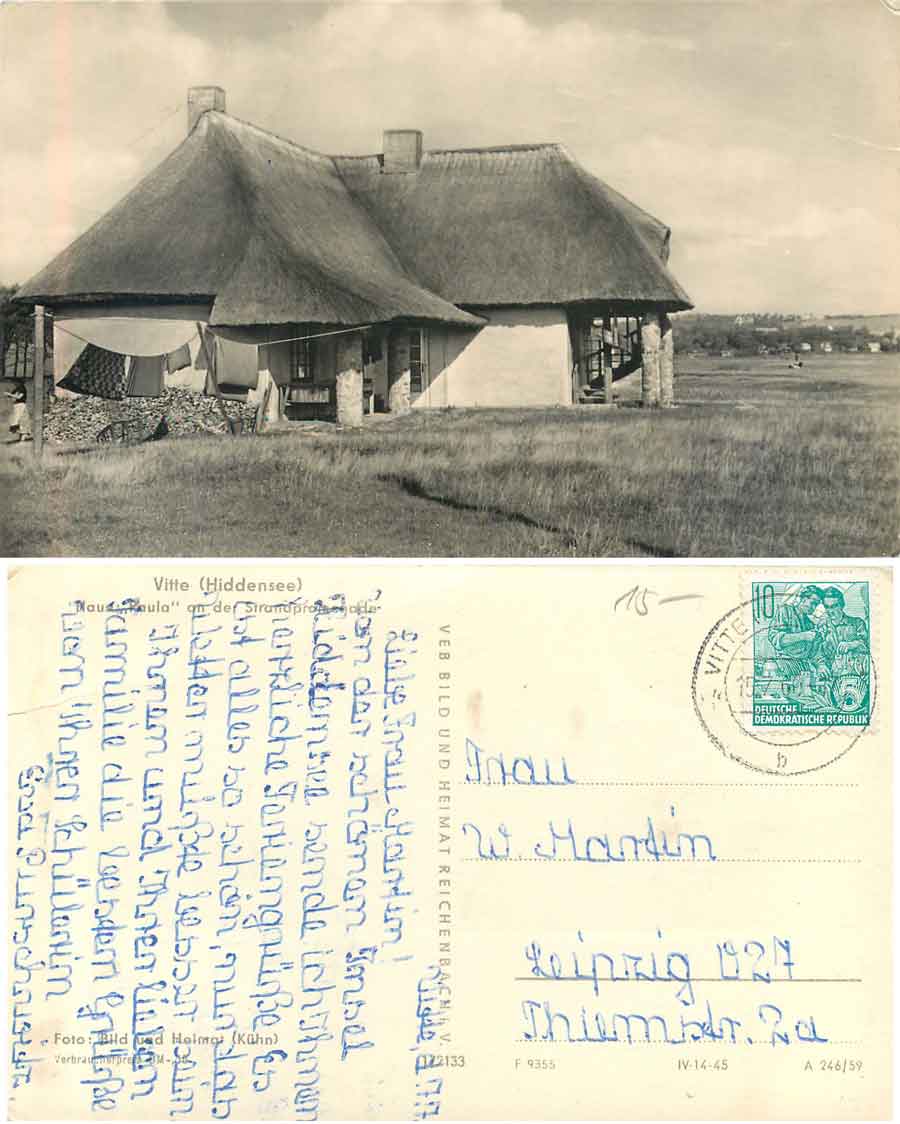 Vitte (Hiddensee)
Haus „Paula" an der Strandpromenade
Vitte
Liebe Frau Martin!
Von der schönen Insel
Hiddensee sende ich Ihnen
herzliche Feriengrüße. Es
ist alles so schön, nur das
Wetter müßte besser sein.
Ihnen und Ihrer lieben
Familie die besten Grüße
von Ihrer Schülerin
Foto: Bild und Heimat (Kühn)
Verbraucherpreis DM
VEB BILD UND HEIMAT REICHENBACH i. V.
15—
VITTE
b
10
5
DEUTSCHE
DEMOKRATISCHE REPUBLIK
Frau
W. Martin
Leipzig O27
Thiemstr. 2a
F 9355
IV-14-45
A 246/59